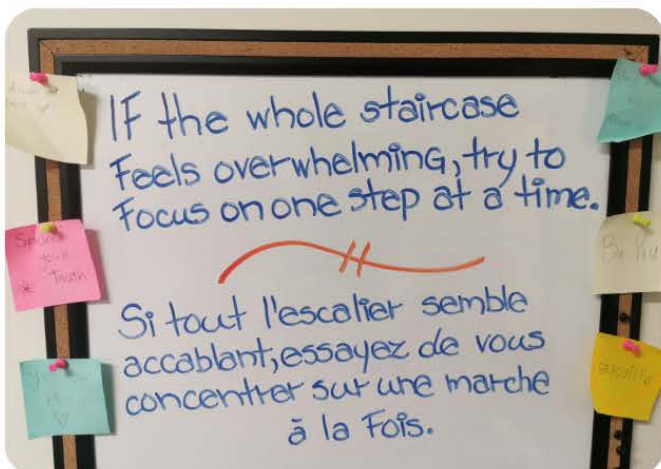 IF the whole staircase
Feels overwhelming, try to
Focus on one step at a time.
Si tout l'escalier semble
accablant, essayez de vous
concentrer sur une marche
à la Fois.
Truth
Be You